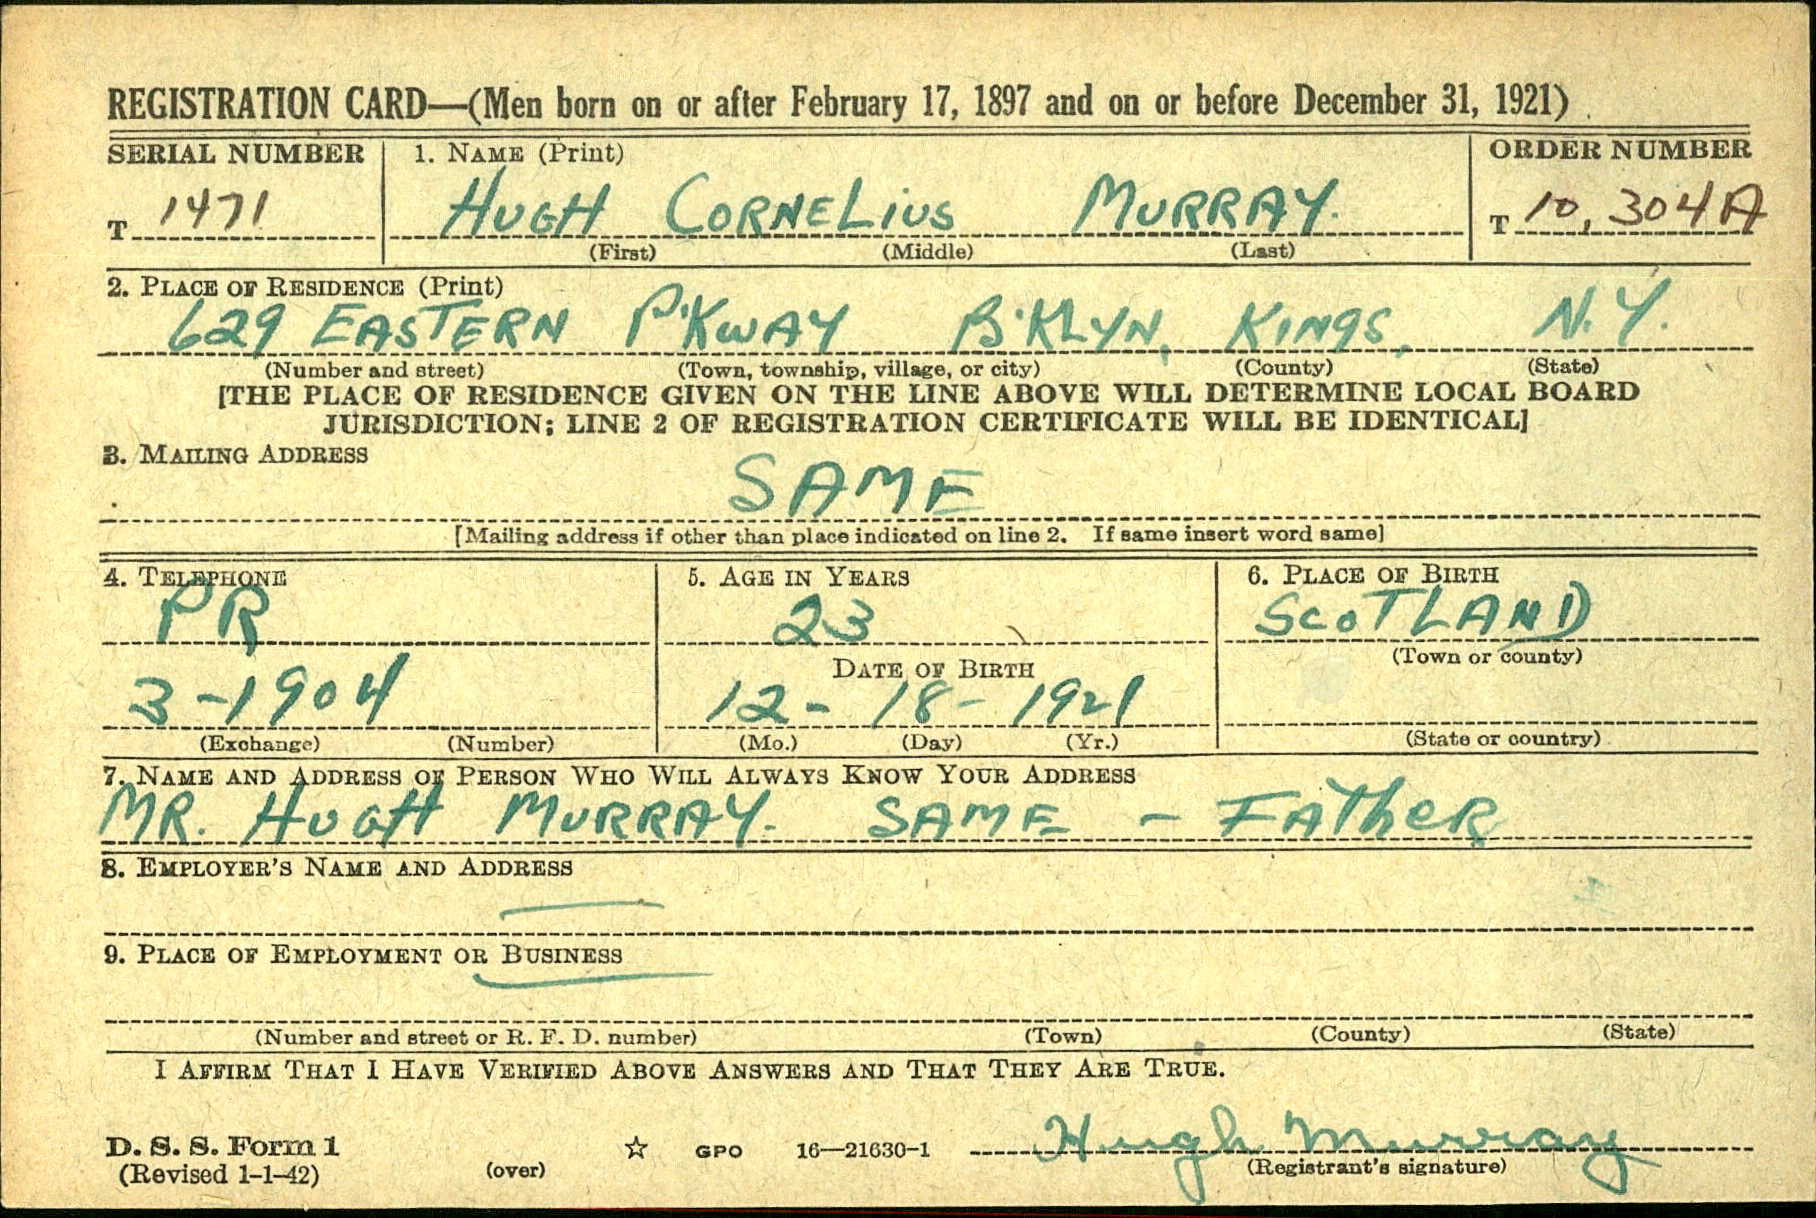 REGISTRATION CARD—(Men born on or after February 17, 1897 and on or before December 31, 1921)
SERIAL NUMBER 1. NAME (Print) ORDER NUMBER
T 1471 HUGH CORNELIUS MURRAY. T 10,304A
(First) (Middle) (Last)
2. PLACE OF RESIDENCE (Print)
629 EASTERN P'KWAY B'KLYN, KINGS, N.Y.
(Number and street) (Town, township, village, or city) (County) (State)
[THE PLACE OF RESIDENCE GIVEN ON THE LINE ABOVE WILL DETERMINE LOCAL BOARD
JURISDICTION; LINE 2 OF REGISTRATION CERTIFICATE WILL BE IDENTICAL]
3. MAILING ADDRESS
SAME
[Mailing address if other than place indicated on line 2. If same insert word same]
4. TELEPHONE 5. AGE IN YEARS 6. PLACE OF BIRTH
PR 23 SCOTLAND
(Town or county)
DATE OF BIRTH
3-1904 12-18-1921
(Exchange) (Number) (Mo.) (Day) (Yr.) (State or country)
7. NAME AND ADDRESS OF PERSON WHO WILL ALWAYS KNOW YOUR ADDRESS
MR. HUGH MURRAY. SAME - FATHER
8. EMPLOYER'S NAME AND ADDRESS
9. PLACE OF EMPLOYMENT OR BUSINESS
(Number and street or R. F. D. number) (Town) (County) (State)
I AFFIRM THAT I HAVE VERIFIED ABOVE ANSWERS AND THAT THEY ARE TRUE.
Hugh Murray
D. S. S. Form 1 ☆ GPO 16—21630-1
(Revised 1-1-42) (over) (Registrant's signature)